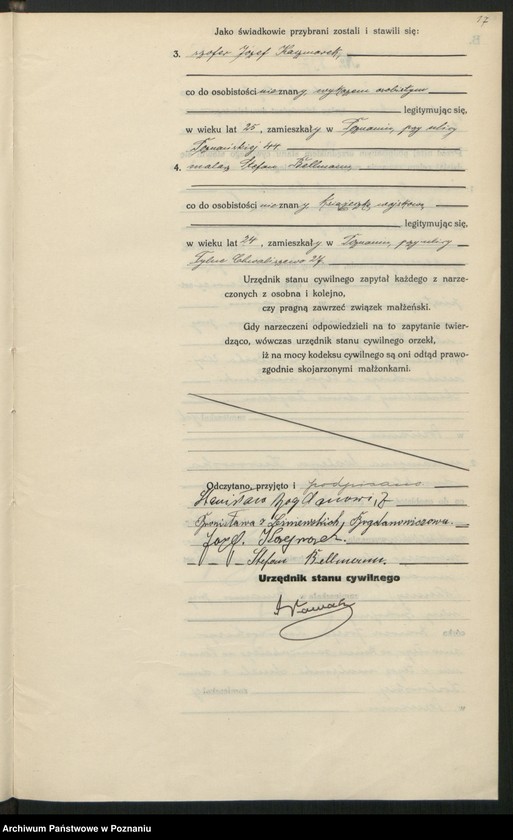 17
Jako świadkowie przybrani zostali i stawili się:
3. szofer Józef Kaczmarek,
co do osobistości nieznany, wykazem osobistym
legitymując się,
w wieku lat 25, zamieszkały w Poznaniu, przy ulicy
Poznańskiej 44
4. malarz Stefan Bellmann,
co do osobistości nieznany książeczką wojskową
legitymując się,
w wieku lat 24, zamieszkały w Poznaniu, przy ulicy
Tylne Chwaliszewo 27.
Urzędnik stanu cywilnego zapytał każdego z narze-
czonych z osobna i kolejno,
czy pragną zawrzeć związek małżeński.
Gdy narzeczeni odpowiedzieli na to zapytanie twier-
dząco, wówczas urzędnik stanu cywilnego orzekł,
iż na mocy kodeksu cywilnego są oni odtąd prawo-
zgodnie skojarzonymi małżonkami.
Odczytano, przyjęto i podpisano
Stanisław Bogdanowicz
Bronisława z Bogdanowiczowa.
Józef Kaczmarek.
Stefan Bellmann.
Urzędnik stanu cywilnego
Archiwum Państwowe w Poznaniu